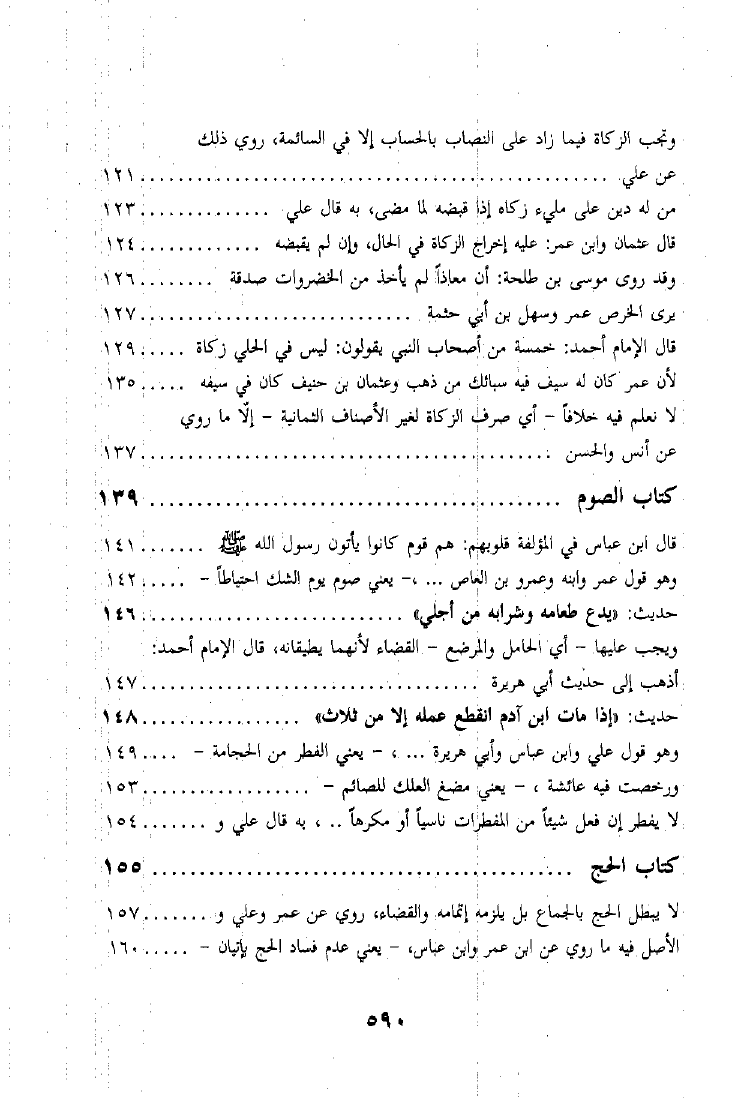 وتجب الزكاة فيما زاد على النصاب بالحساب إلا في السائمة، روي ذلك
عن علي ........................................ ١٢١
من له دين على مليء زكاه إذا قبضه لما مضى، به قال علي .............. ١٢٣
قال عثمان وابن عمر: عليه إخراج الزكاة في الحال، وإن لم يقبضه ............. ١٢٤
وقد روى موسى بن طلحة: أن معاذاً لم يأخذ من الخضروات صدقة ........ ١٢٦
يرى الخرص عمر وسهل بن أبي حثمة ............................ ١٢٧
قال الإمام أحمد: خمسة من أصحاب النبي يقولون: ليس في الحلي زكاة ..... ١٢٩
لأن عمر كان له سيف فيه سبائك من ذهب وعثمان بن حنيف كان في سيفه ..... ١٣٥
لا نعلم فيه خلافاً – أي صرف الزكاة لغير الأصناف الثمانية – إلّا ما روي
عن أنس والحسن .................................... ١٣٧
كتاب الصوم ........................................ ١٣٩
قال ابن عباس في المؤلفة قلوبهم: هم قوم كانوا يأتون رسول الله ﷺ ....... ١٤١
وهو قول عمر وابنه وعمرو بن العاص ... ،– يعني صوم يوم الشك احتياطاً – ..... ١٤٢
حديث: «يدع طعامه وشرابه من أجلي» .......................... ١٤٦
ويجب عليها – أي الحامل والمرضع – القضاء لأنهما يطيقانه، قال الإمام أحمد:
أذهب إلى حديث أبي هريرة ............................... ١٤٧
حديث: «إذا مات ابن آدم انقطع عمله إلا من ثلاث» ................. ١٤٨
وهو قول علي وابن عباس وأبي هريرة ... ، – يعني الفطر من الحجامة – .... ١٤٩
ورخصت فيه عائشة ، – يعني مضغ العلك للصائم – .................. ١٥٣
لا يفطر إن فعل شيئاً من المفطرات ناسياً أو مكرهاً .. ، به قال علي و ....... ١٥٤
كتاب الحج ........................................ ١٥٥
لا يبطل الحج بالجماع بل يلزمه إتمامه والقضاء، روي عن عمر وعلي و ....... ١٥٧
الأصل فيه ما روي عن ابن عمر وابن عباس، – يعني عدم فساد الحج بإتيان – ..... ١٦٠
٥٩٠